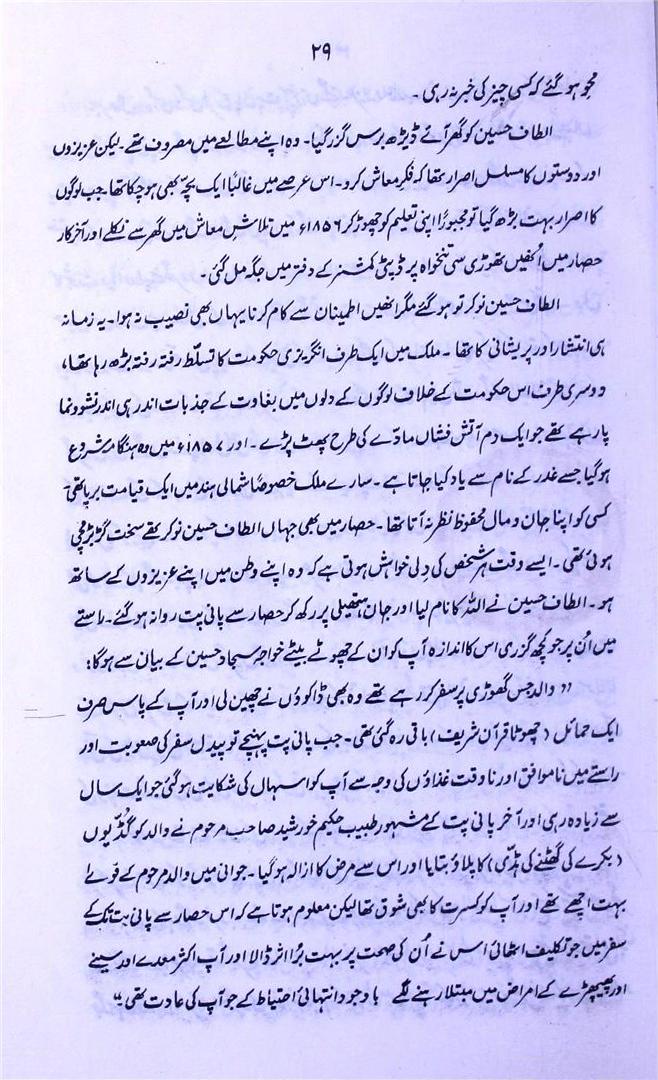 ۲۹
محو ہو گئے کہ کسی چیز کی خبر نہ رہی ۔
الطاف حسین کو گھر آئے ڈیڑھ برس گزر گیا۔ وہ اپنے مطالعے میں مصروف تھے ۔ لیکن عزیزوں
اور دوستوں کا مسلسل اصرار تھا کہ فکرِ معاش کرو۔ اس عرصے میں غالباً ایک بچّہ بھی ہو چکا تھا۔ جب لوگوں
کا اصرار بہت بڑھ گیا تو مجبوراً اپنی تعلیم کو چھوڑ کر ۱۸۵۶ء میں تلاشِ معاش میں گھر سے نکلے اور آخر کار
حصار میں اُنھیں تھوڑی سی تنخواہ پر ڈپٹی کمشنر کے دفتر میں جگہ مل گئی ۔
الطاف حسین نوکر تو ہو گئے مگر انھیں اطمینان سے کام کرنا یہاں بھی نصیب نہ ہوا۔ یہ زمانہ
ہی انتشار اور پریشانی کا تھا ۔ ملک میں ایک طرف انگریزی حکومت کا تسلّط رفتہ رفتہ بڑھ رہا تھا،
دوسری طرف اس حکومت کے خلاف لوگوں کے دلوں میں بغاوت کے جذبات اندر ہی اندر نشوونما
پا رہے تھے جو ایک دم آتش فشاں مادّے کی طرح پھٹ پڑے ۔ اور ۱۸۵۷ء میں وہ ہنگامہ شروع
ہو گیا جسے غدر کے نام سے یاد کیا جاتا ہے ۔ سارے ملک خصوصاً شمالی ہند میں ایک قیامت برپا تھی
کسی کو اپنا جان و مال محفوظ نظر نہ آتا تھا ۔ حصار میں بھی جہاں الطاف حسین نوکر تھے سخت گڑبڑ مچی
ہوئی تھی ۔ ایسے وقت ہر شخص کی دلی خواہش ہوتی ہے کہ وہ اپنے وطن میں اپنے عزیزوں کے ساتھ
ہو ۔ الطاف حسین نے اللہ کا نام لیا اور جان ہتھیلی پر رکھ کر حصار سے پانی پت روانہ ہو گئے ۔ راستے
میں اُن پر جو کچھ گزری اس کا اندازہ آپ کو ان کے چھوٹے بیٹے خواجہ سجاد حسین کے بیان سے ہوگا:
” والد جس گھوڑی پر سفر کر رہے تھے وہ بھی ڈاکوؤں نے چھین لی اور آپ کے پاس صرف
ایک حمائل (چھوٹا قرآن شریف) باقی رہ گئی تھی۔ جب پانی پت پہنچے تو پیدل سفر کی صعوبت اور
راستے میں ناموافق اور ناوقت غذاؤں کی وجہ سے آپ کو اسہال کی شکایت ہو گئی جو ایک سال
سے زیادہ رہی اور آخر پانی پت کے مشہور طبیب حکیم خورشید صاحب مرحوم نے والد کو گڈیوں
(بکرے کی گھٹنے کی ہڈی) کا پلاؤ بتایا اور اس سے مرض کا ازالہ ہو گیا ۔ جوانی میں والد مرحوم کے قوےٰ
بہت اچھے تھے اور آپ کو کسرت کا بھی شوق تھا لیکن معلوم ہوتا ہے کہ اس حصار سے پانی پت تک کے
سفر میں جو تکلیف اٹھائی اس نے اُن کی صحت پر بہت بُرا اثر ڈالا اور آپ اکثر معدے اور سینے
اور پھیپھڑے کے امراض میں مبتلا رہنے لگے باوجود انتہائی احتیاط کے جو آپ کی عادت تھی ۔“